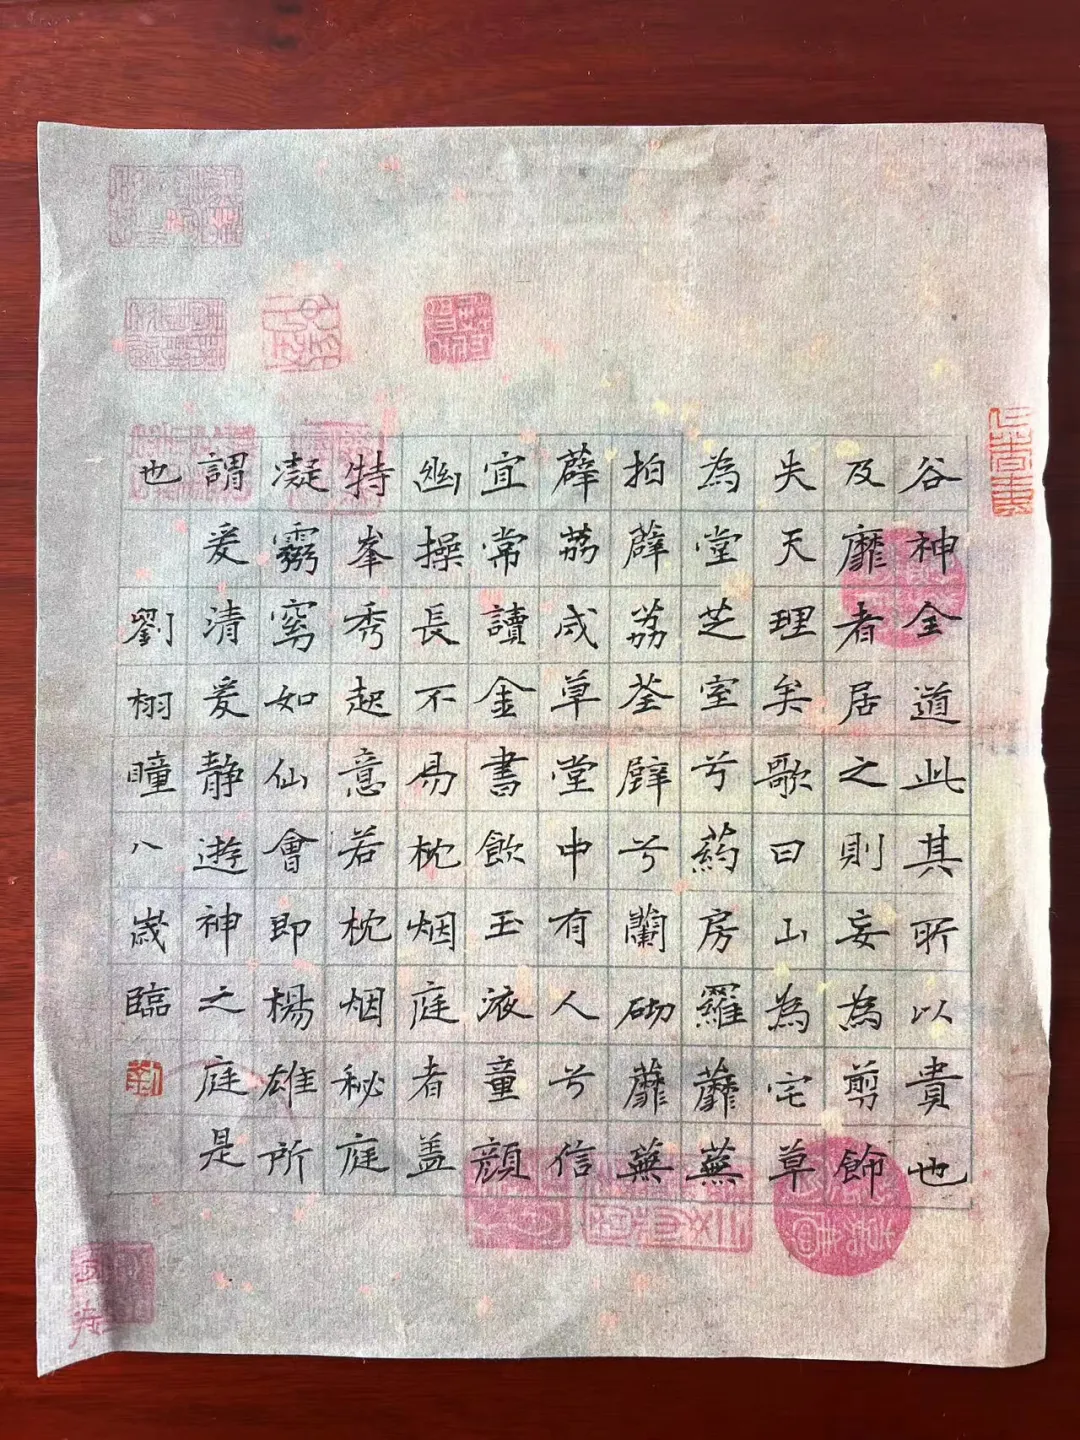 谷神全道此其所以貴也
及靡者居之則妄為剪飾
失天理矣歌曰山為宅草
為堂芝室兮葯房羅蘼蕪
拍薜荔荃壁兮蘭砌蘼蕪
薜荔成草堂中有人兮信
宜常讀金書飲玉液童顔
幽操長不易枕烟庭者盖
特峯秀起意若枕烟秘庭
凝霧窅如仙會即楊雄所
謂爰清爰静遊神之庭是
也
劉栩瞳八歲臨